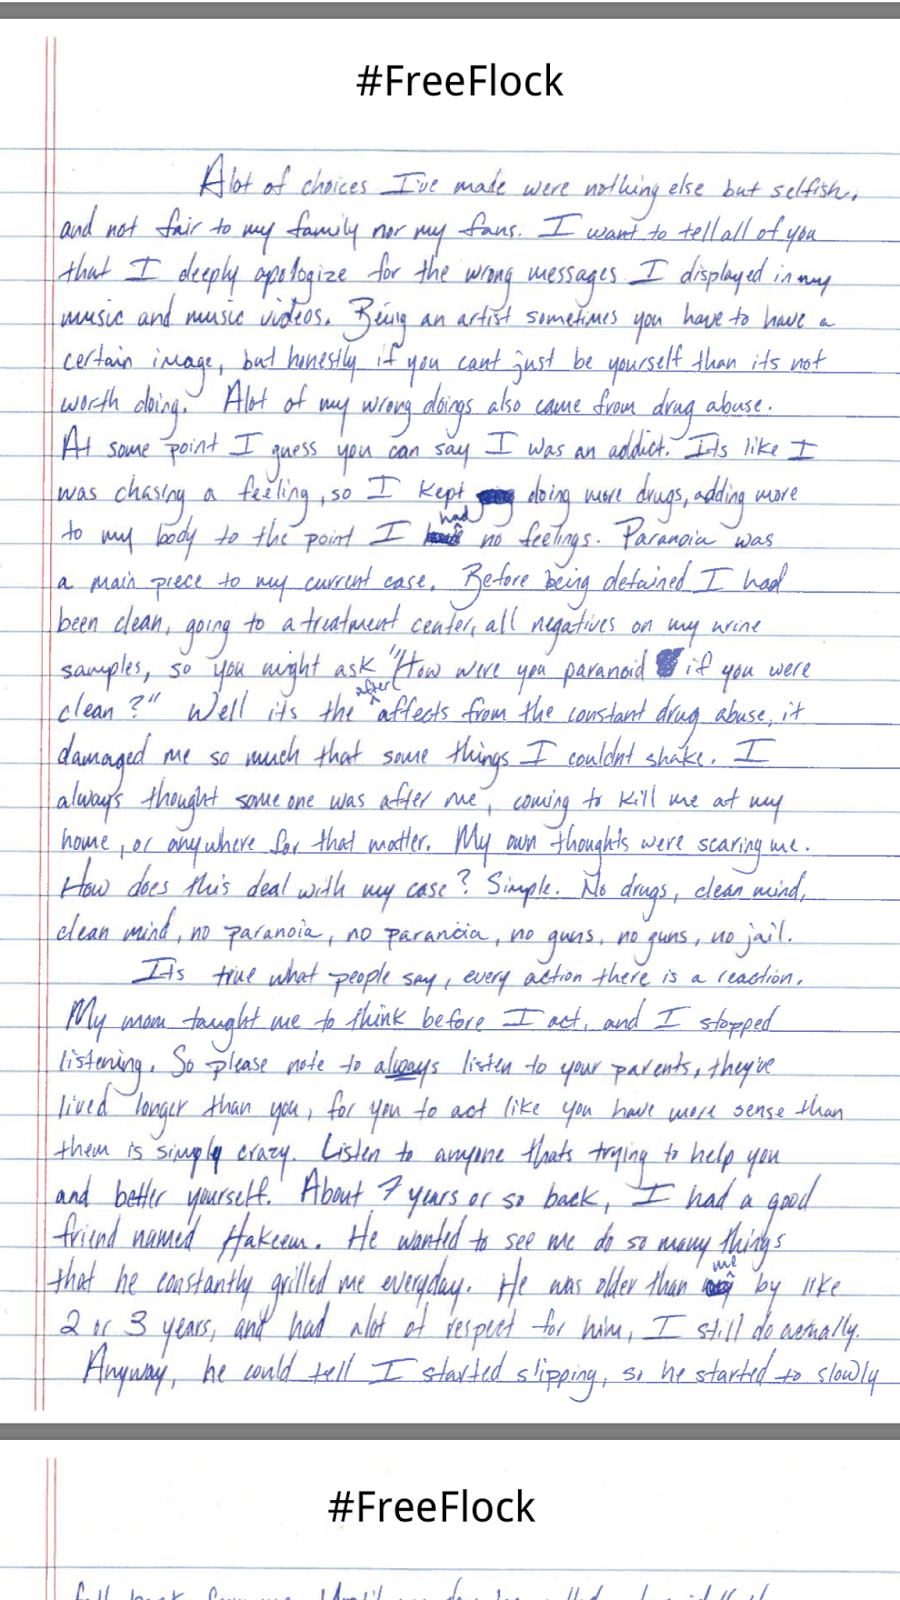 #FreeFlock
Alot of choices I've made were nothing else but selfish,
and not fair to my family nor my fans. I want to tell all of you
that I deeply apologize for the wrong messages I displayed in my
music and music videos. Being an artist sometimes you have to have a
certain image, but honestly if you cant just be yourself than its not
worth doing. Alot of my wrong doings also came from drug abuse.
At some point I guess you can say I was an addict. Its like I
was chasing a feeling, so I kept doing more drugs, adding more
to my body to the point I had no feelings. Paranoia was
a main piece to my current case. Before being detained I had
been clean, going to a treatment center, all negatives on my urine
samples, so you might ask "How were you paranoid if you were
clean?" Well its the after affects from the constant drug abuse, it
damaged me so much that some things I couldnt shake. I
always thought someone was after me, coming to kill me at my
home, or anywhere for that matter. My own thoughts were scaring me.
How does this deal with my case? Simple. No drugs, clean mind,
clean mind, no paranoia, no paranoia, no guns, no guns, no jail.
Its true what people say, every action there is a reaction.
My mom taught me to think before I act, and I stopped
listening. So please note to always listen to your parents, they've
lived longer than you, for you to act like you have more sense than
them is simply crazy. Listen to anyone thats trying to help you
and better yourself. About 7 years or so back, I had a good
friend named Hakeem. He wanted to see me do so many things
that he constantly grilled me everyday. He was older than me by like
2 or 3 years, and had alot of respect for him, I still do actually.
Anyway, he could tell I started slipping, so he started to slowly
#FreeFlock